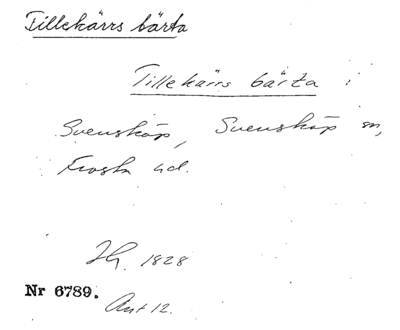 Tillekärrs bärta
Tillekärrs bärta :
Svensköp, Svensköp sn,
Frosta hd.
1828
Nr 6789.
Ant 12.